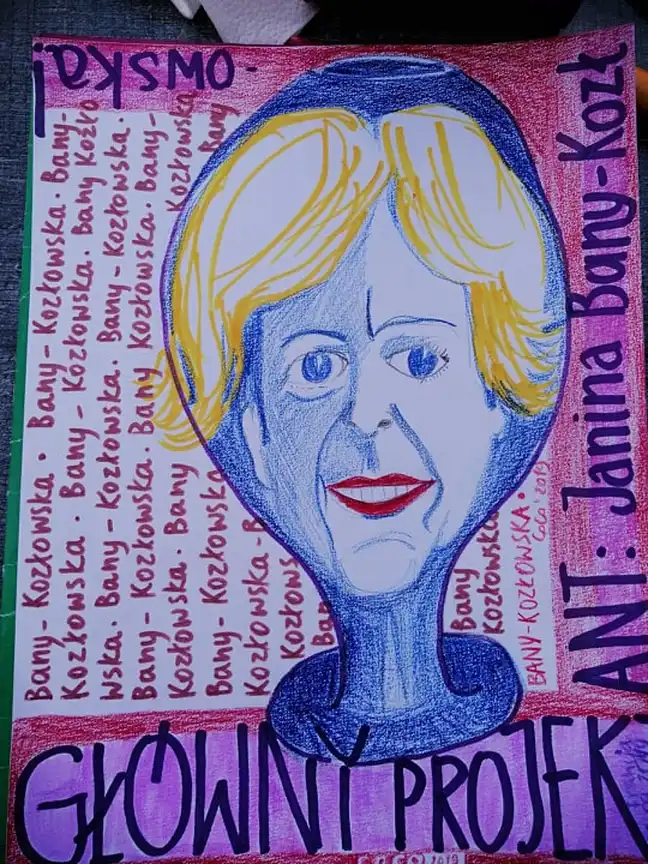 GŁÓWNY PROJEK
ANT: Janina Bany-Kozł
owska
Bany - Kozłowska · Bany - Kozłowska. Bany-
Kozłowska · Bany - Kozłowska. Bany Kozło
wska. Bany - Kozłowska. Bany - Kozłowska.
Bany - Kozłowska. Bany Kozłowska. Bany-
Kozłowska. Bany Kozłowska
Bany - Kozłowska Bany
Kozłowska - B
Kozłows
Ba
Bany
Kozłowska
BANY-KOZŁOWSKA.
GoGo'2019